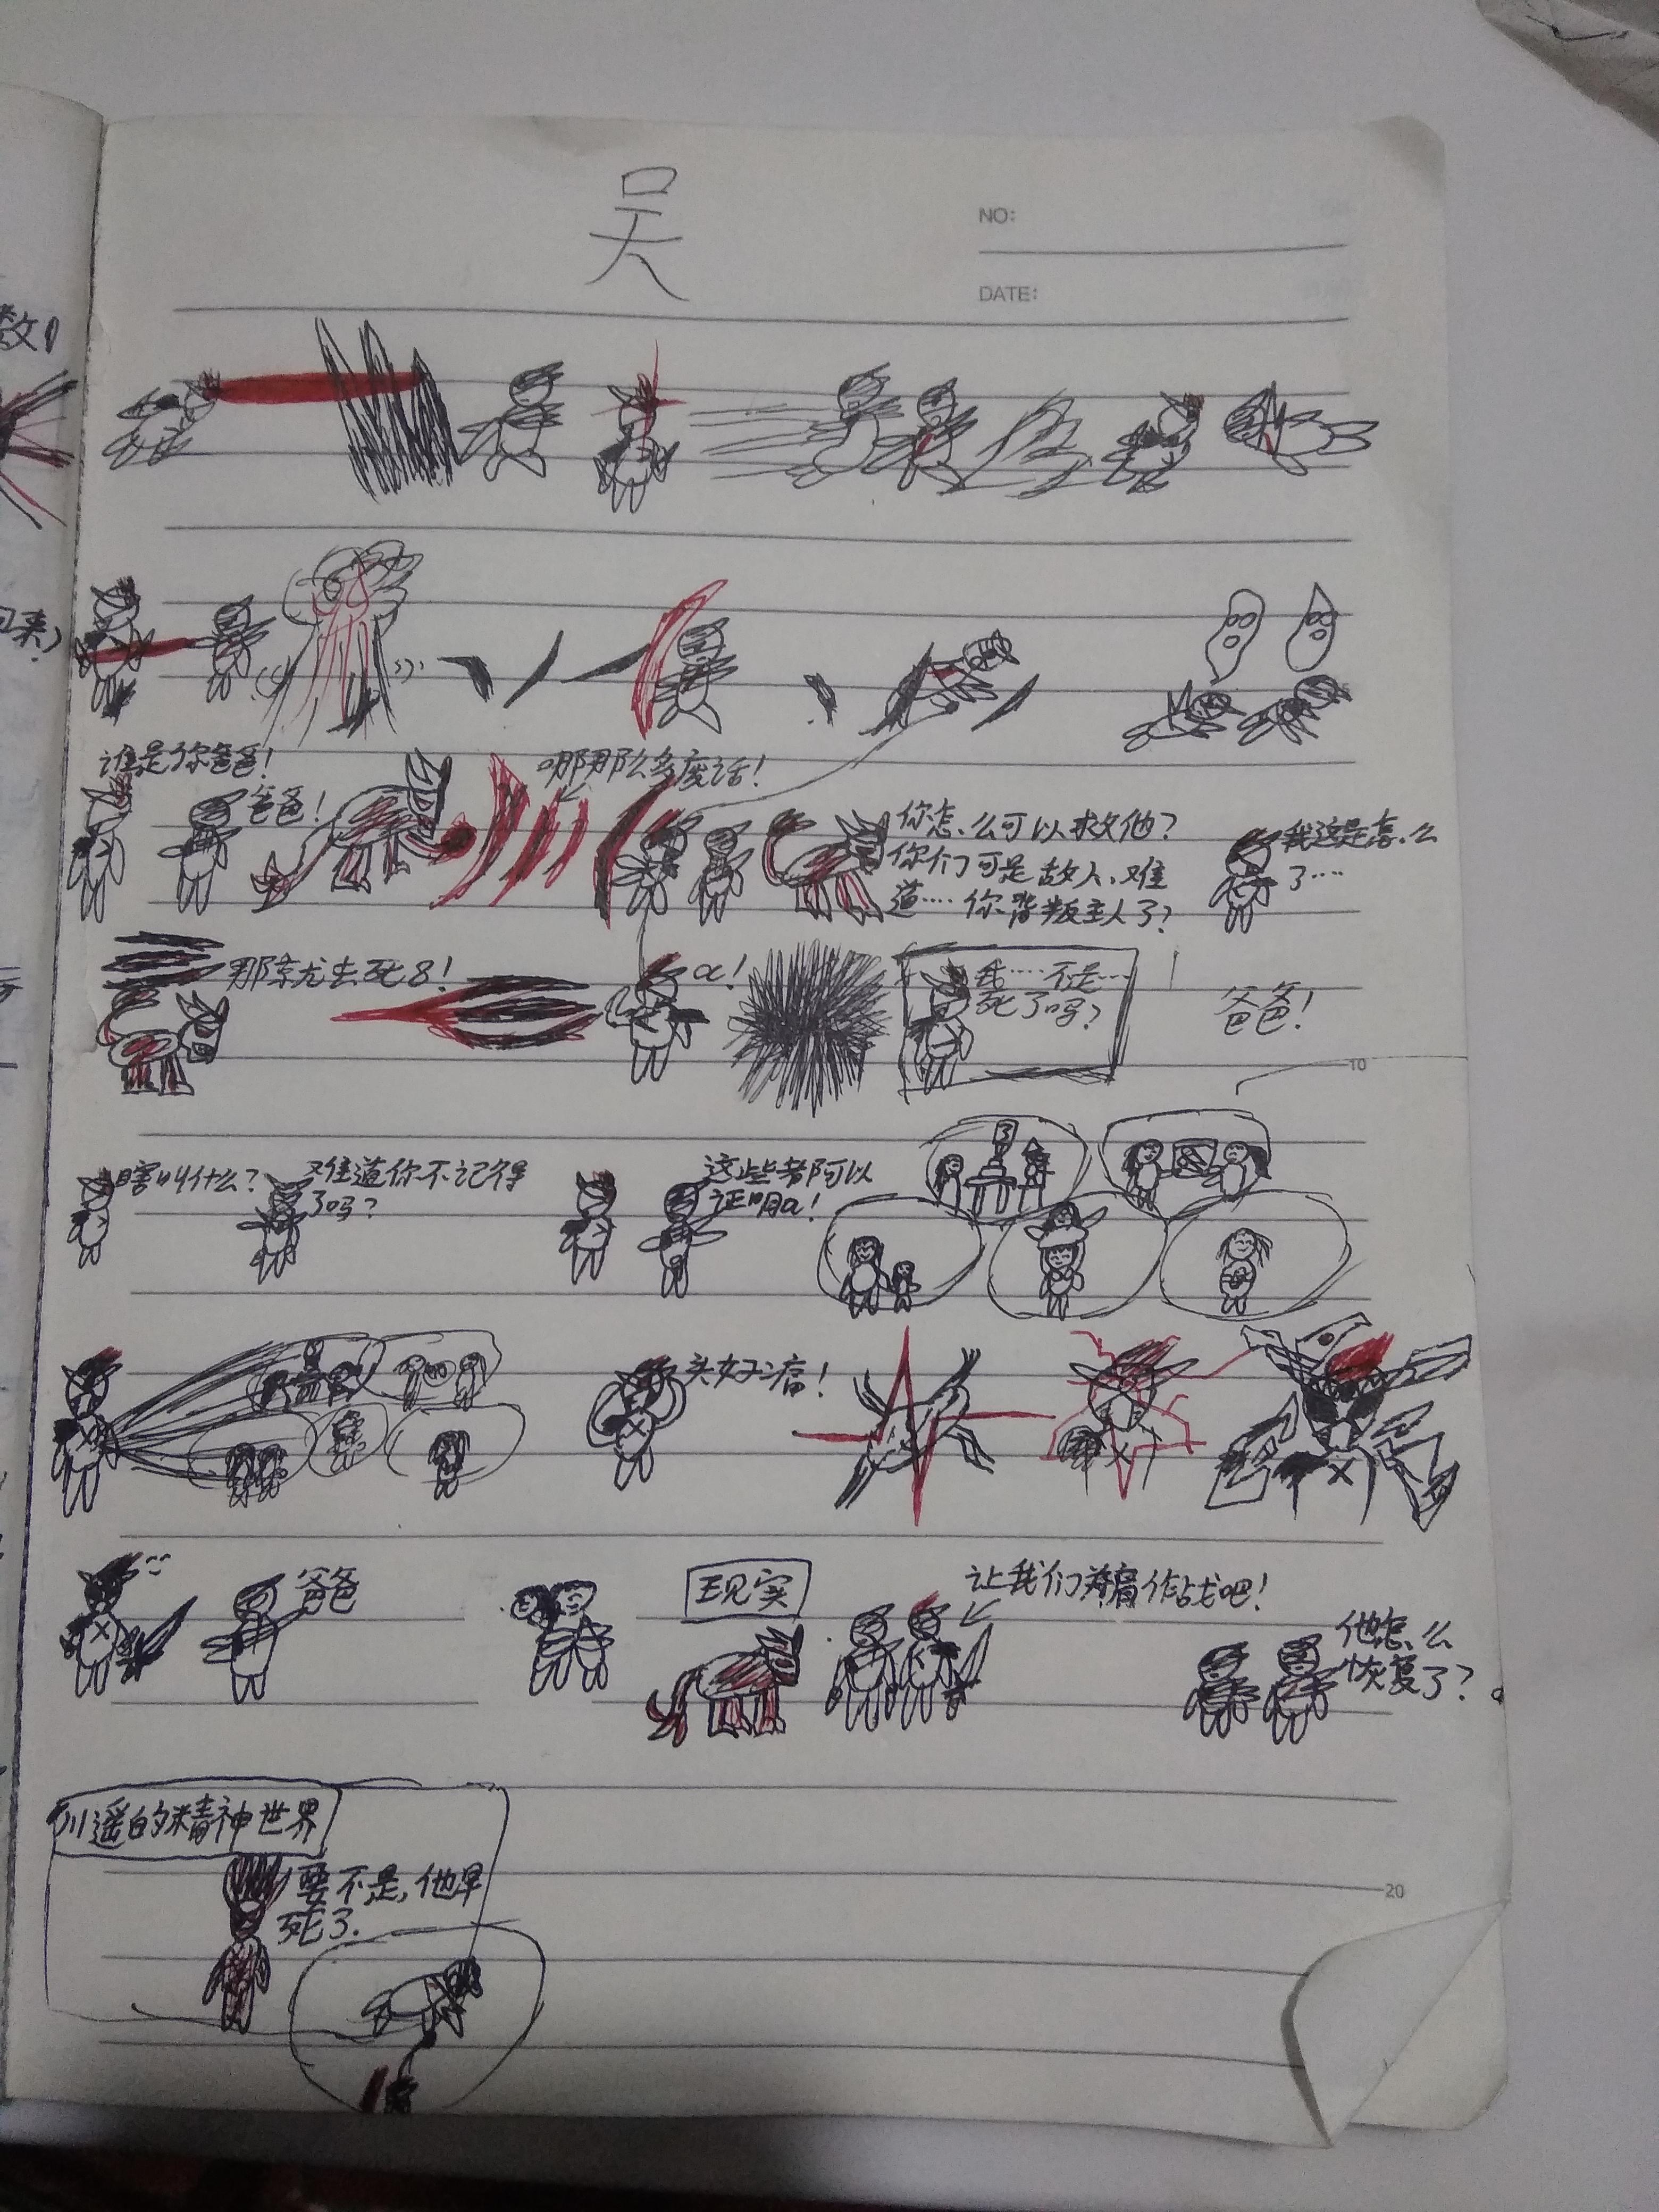 吴
NO:
DATE:
数
来
谁是你爸爸!
爸爸!
哪那么多废话!
你怎么可以救他?
你们可是敌人,难
道……你背叛主人了?
我这是怎么
了……
那就去死8!
a!
我……不是……
死了吗?
爸爸!
10
瞎叫什么?
难道你不记得
了吗?
这些都可以
证明a!
3
头好疼!
爸爸
现实
让我们并肩作战吧!
他怎么
恢复了?
川遥的精神世界
要不是,他早
死了.
20